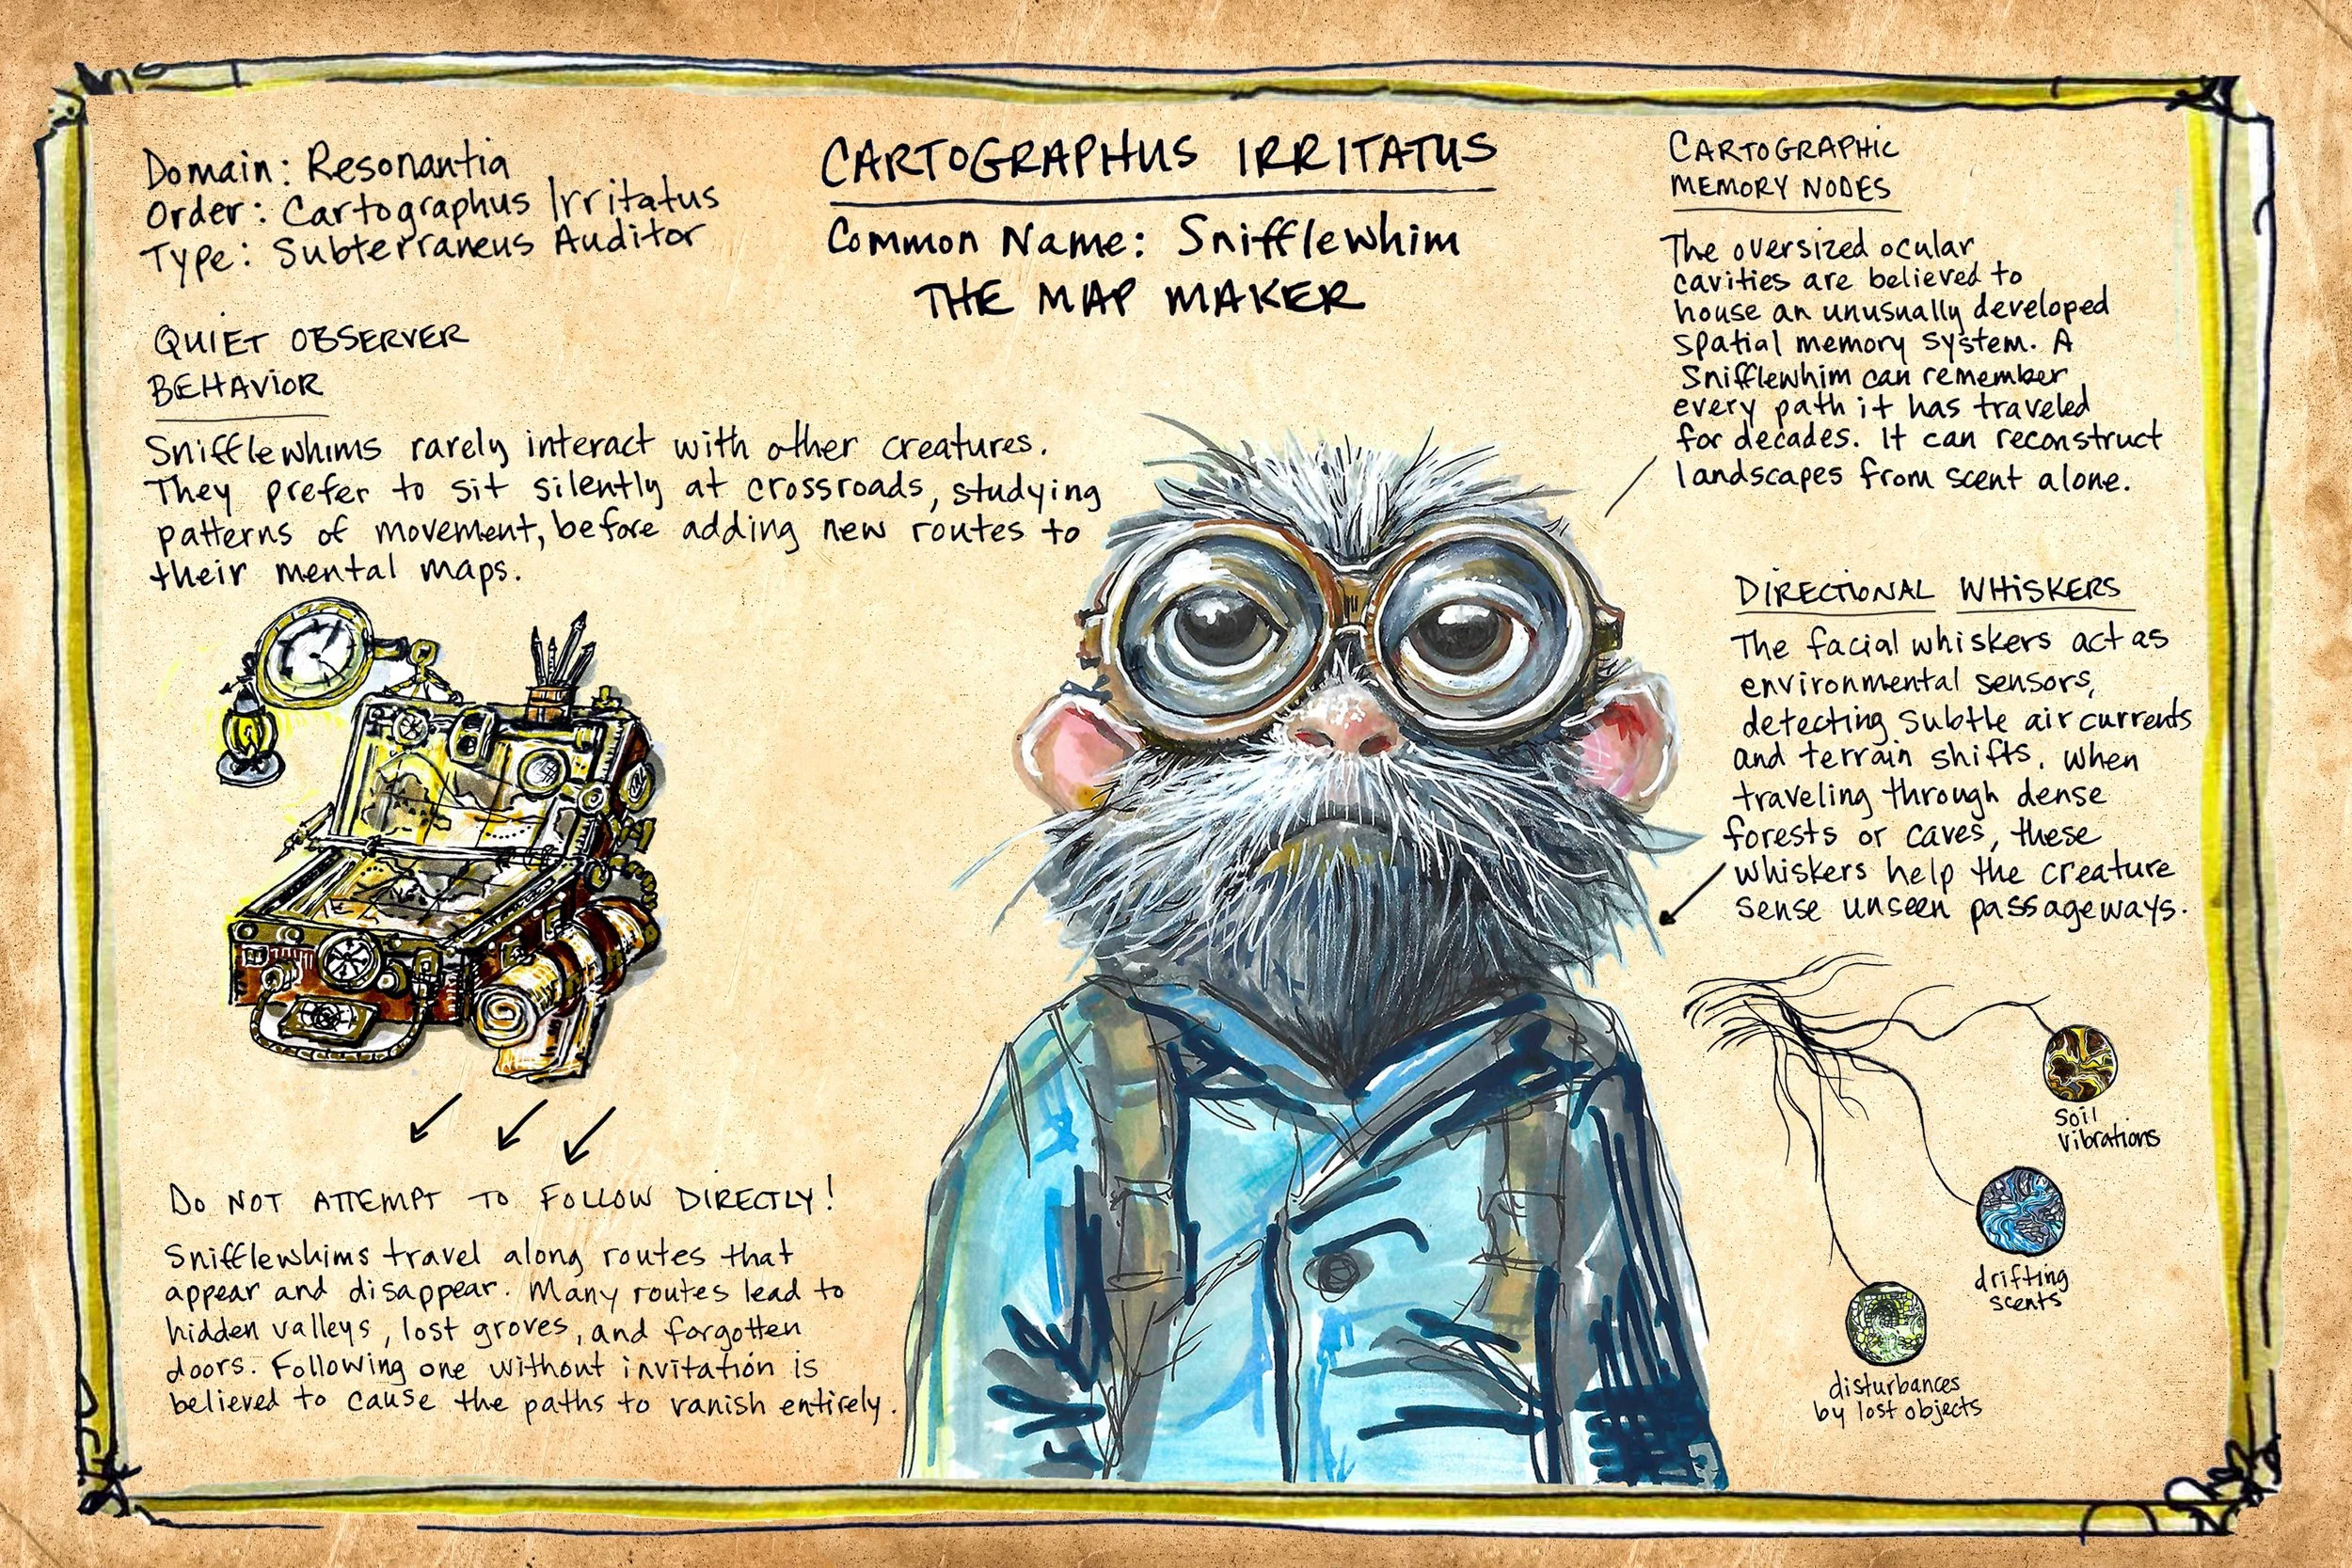 Domain: Resonantia
Order: Cartographus Irritatus
Type: Subterraneus Auditor
CARTOGRAPHUS IRRITATUS
Common Name: Snifflewhim
THE MAP MAKER
QUIET OBSERVER
BEHAVIOR
Snifflewhims rarely interact with other creatures.
They prefer to sit silently at crossroads, studying
patterns of movement, before adding new routes to
their mental maps.
DO NOT ATTEMPT TO FOLLOW DIRECTLY!
Snifflewhims travel along routes that
appear and disappear. Many routes lead to
hidden valleys, lost groves, and forgotten
doors. Following one without invitation is
believed to cause the paths to vanish entirely.
CARTOGRAPHIC
MEMORY NODES
The oversized ocular
cavities are believed to
house an unusually developed
spatial memory system. A
Snifflewhim can remember
every path it has traveled
for decades. It can reconstruct
landscapes from scent alone.
DIRECTIONAL WHISKERS
The facial whiskers act as
environmental sensors,
detecting subtle air currents
and terrain shifts. When
traveling through dense
forests or caves, these
whiskers help the creature
sense unseen passageways.
Soil
vibrations
drifting
scents
disturbances
by lost objects